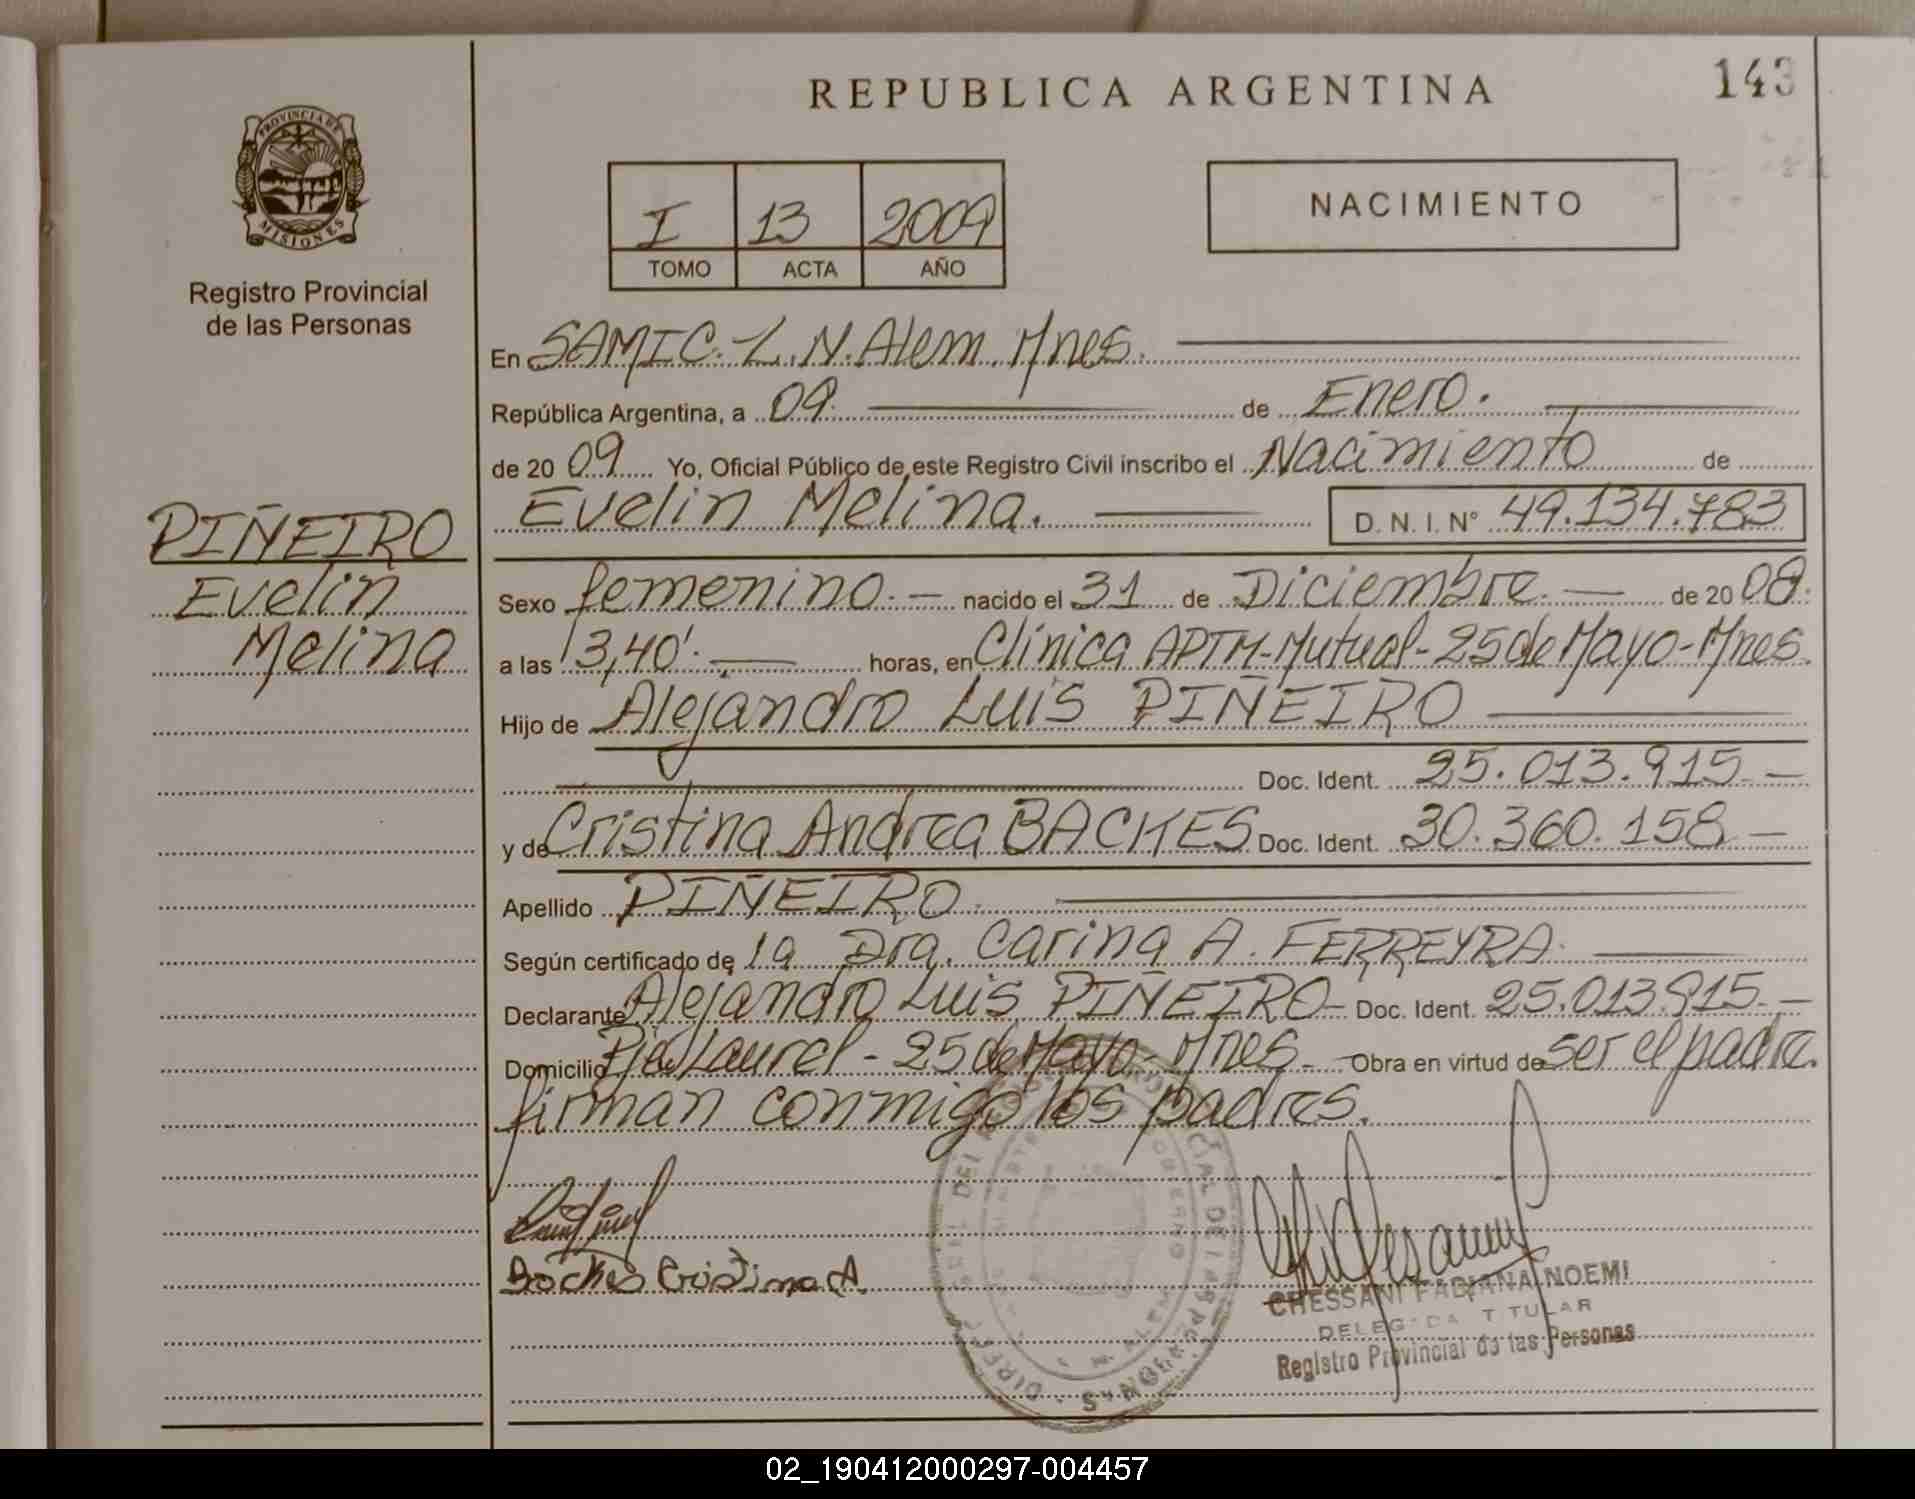 REPUBLICA ARGENTINA
143
PROVINCIA DE
MISIONES
Registro Provincial
de las Personas
I 13 2009
TOMO ACTA AÑO
NACIMIENTO
En SAMIC. L. N. Alem. Mnes.
República Argentina, a 09. de Enero.
de 20 09 Yo, Oficial Público de este Registro Civil inscribo el Nacimiento de
Evelin Melina. D. N. I. N° 49.134.783
PIÑEIRO
Evelin
Melina
Sexo femenino. — nacido el 31 de Diciembre. — de 20 08.
a las 13,40'. — horas, en Clínica APTM-Mutual-25 de Mayo-Mnes.
Hijo de Alejandro Luis PIÑEIRO
Doc. Ident. 25.013.915 —
y de Cristina Andrea BACKES Doc. Ident. 30.360.158 —
Apellido PIÑEIRO.
Según certificado de la Dra. Carina A. FERREYRA.
Declarante Alejandro Luis PIÑEIRO- Doc. Ident. 25.013.915. —
Domicilio Pje Laurel - 25 de Mayo - Mnes. Obra en virtud de ser el padre.
firman conmigo los padres.
Backes Cristina A.
CHESSANI FABIANA NOEMI
DELEGADA TITULAR
Registro Provincial de las Personas
02_190412000297-004457